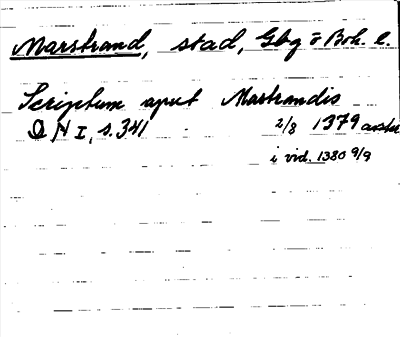 Marstrand, stad, Gbg o Boh. l.
Scriptum aput Mastrandis
D N I, s. 341 2/8 1379 avskr
i vid. 1380 9/9